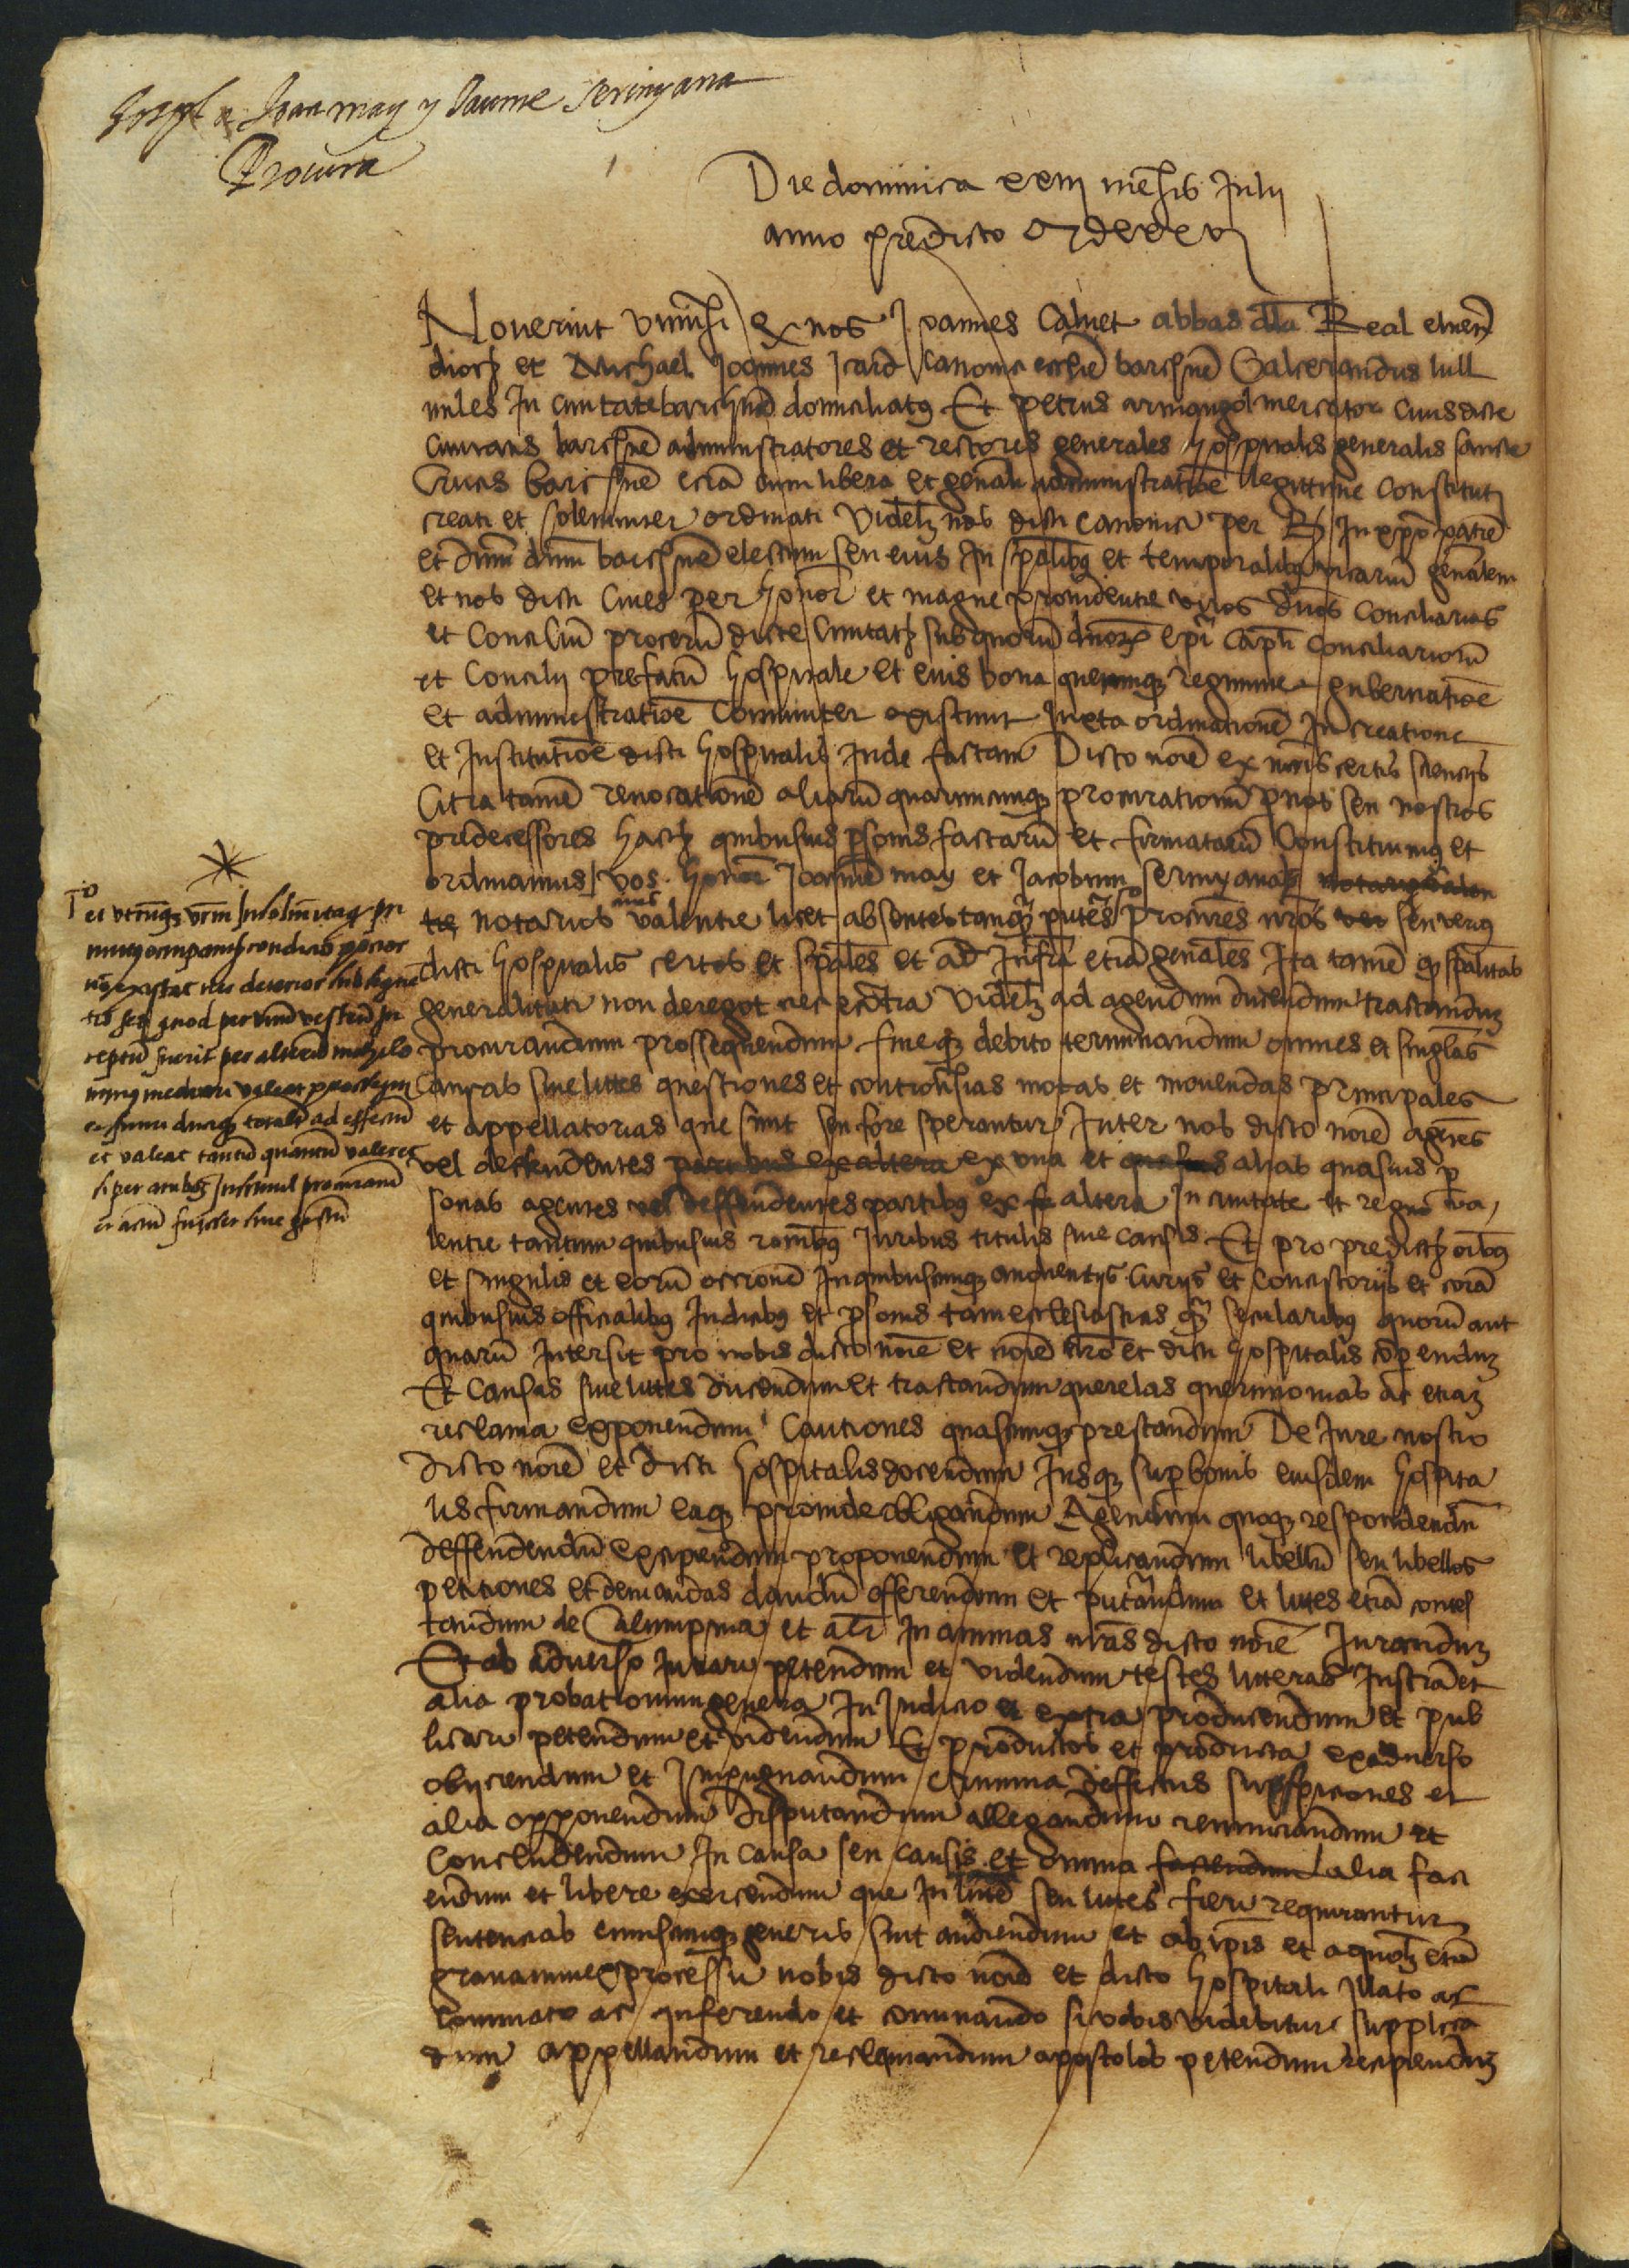 Joan may y Jaume Serinyana
Procura
Die dominica xxiii mensis Julii
anno predicto
Noverint universi q nos Joannes Calvet abbas dla Real elnen
dioc et Michael Joannes canonici ecclie barchne Galcerandus lull
miles In civitate barchne domiciliatus Et petrus mercator civis dicte
civitatis barchne administratores et rectores generales hospitalis generalis sancte
Crucis barchne etia cum libera et generali administratioe legittime constituti
creati et solemniter ordinati videlz nos dicti canonici per R In xpo patre
et dnm dnm barchne electum seu eius In spalibus et temporalibus vicariu generalem
et nos dicti cives per honor et magne providentie viros dnos Conciliarios
et Conciliu proceru dicte Civitatis sub quoru dnoz epi capli Conciliarioru
et Concilii prefatu hospitale et eius bona quecunqz regimine gubernatioe
et administratioe comuniter existunt Juxta ordinatione In creatione
et Institutioe dicti hospitalis Inde factam Dicto noie ex nris certis scienciis
Citra tame revocatione aliaru quarumcunqz procurationu p nos seu nostros
predecessores hactz quibusvis psonis factaru et firmataru Constituimus et
ordinamus vos honor Joanne may et Jacobum Serinyana
notarios cives valentie licet absentes tanqz pntes procures nros seu verius
dicti hospitalis certos et spales et ad Infra etia generales Ita tame q spalitas
generalitati non deroget nec econtra Videlz ad agendum ducendum tractandum
procurandum prossequendum fineqz debito terminandum omnes et singlas
Causas sive lites questiones et controversias motas et movendas principales
et appellatorias que sunt seu fore sperantur Inter nos dicto noie agetes
vel deffendentes partibus ex altera ex una et quasvis alias quasvis p
sonas agentes vel deffendentes partibus ex altera In civitate et regno va
lentie tantum quibusvis ronibus Juribus titulis sive causis Et pro predictis oibus
et singulis et eoru occione In quibuscunqz audientiis curiis et concistoriis et cora
quibusvis officialibus Iudicibus et psonis tam ecclesiasticis qz secularibus quoru aut
quaru Intersit pro nobis dicto noie et noie nro et dicti hospitalis copendum
Et causas sive lites ducendum et tractandum querelas querimonias ac etiam
reclama exponendum Cautiones quascunqz prestandum De Jure nostro
dicto noie et dicti hospitalis docendum Jusqz sup bonis eiusdem hospita
lis firmandum eaqz proinde obligandum Agendum quoqz respondendu
deffendendu excipiendum proponendum et replicandum libellu seu libellos
petitiones et demandas dandu offerendum et putandum et lites etia contes
tandum de Calumpnia et alr In animas nras dicto noie Jurandum
Et ab adverso Iurari petendum et videndum testes litteras Instra et
alia probationum genera In Iudicio et extra producendum et pub
licari petendum et videndum Et productos et producta ex adverso
obiiciendum et Impugnandum crimina deffectus suspiciones et
alia opponendum disputandum allegandum renunciandum et
Concludendum In causa seu causis et omnia faciendum alia faci
endum et libere exercendum que In lite seu lites fieri requirantur
sentencias cuiuscunqz generis sint audiendum et ab ipsis et a quolz etia
gravamine processu nobis dicto noie et dicto hospitali Illato ac
comminato ac Inferendo et cominando si vobis videbitur supplica
dum appellandum et reclamandum apostolos petendum recipiendum
et utrunqz vrm Insolidum Itaqz pri
mitus occupantis condicio pocior
no existat nec deterior subsegne
tis seq quod per unu vestru In
ceptu fuerit per alteru
mediari valeat prossequi
et finiri ducaqz totalr ad effectu
et valeat tantu quantu valeret
si per ambos Insimul procuratu
et actu fuisset sive gestu